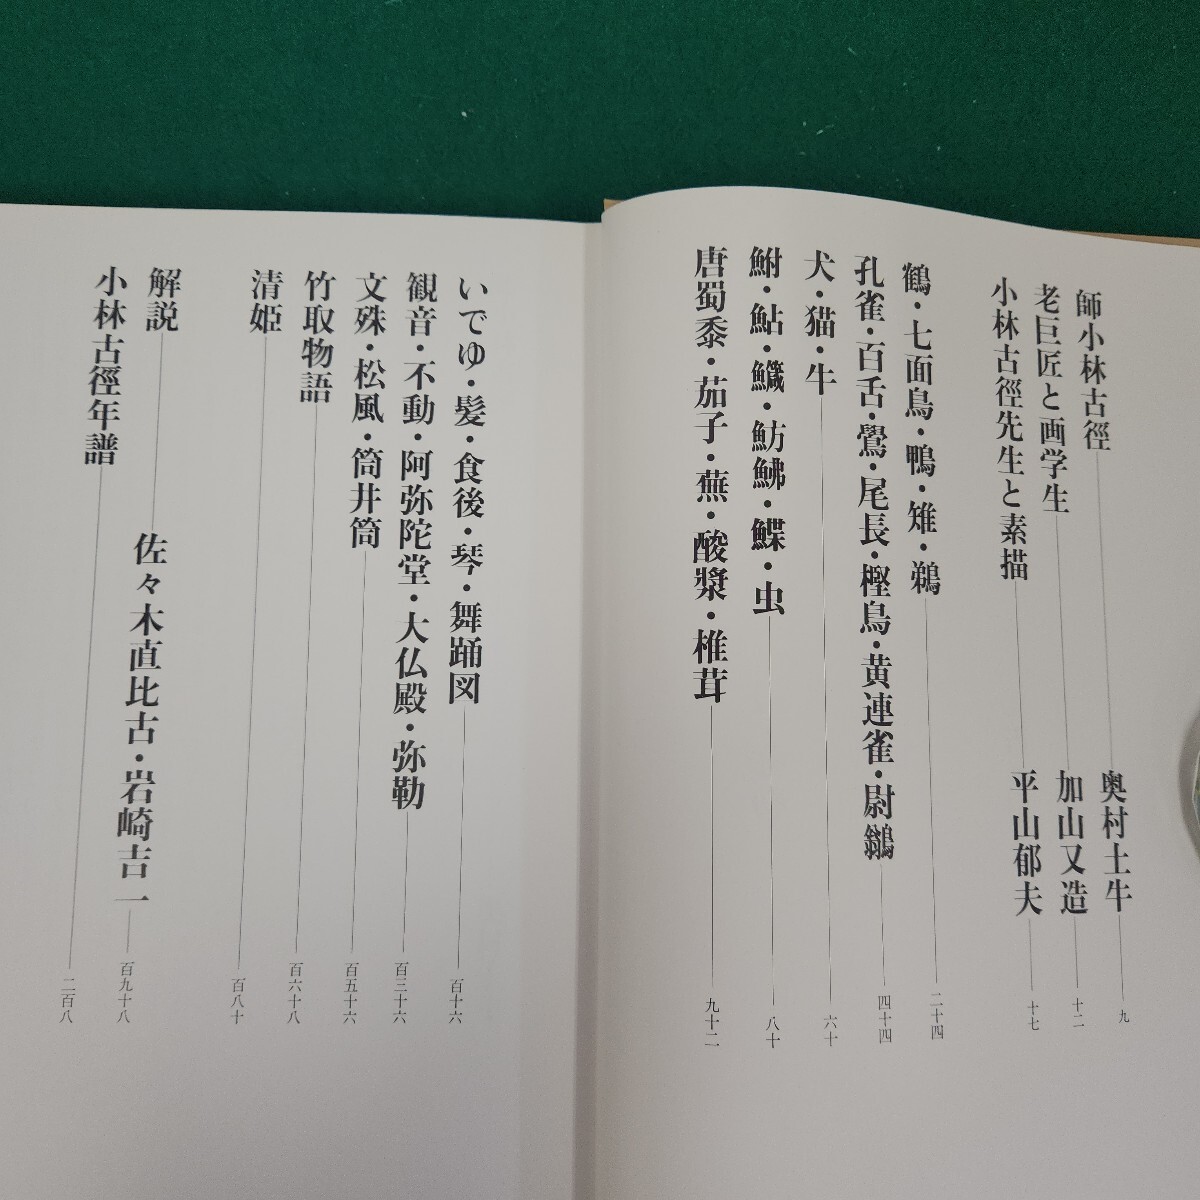 師小林古徑 奥村土牛 九
老巨匠と画学生 加山又造 十二
小林古徑先生と素描 平山郁夫 十七
鶴・七面鳥・鴨・雉・鵜 二十四
孔雀・百舌・鶯・尾長・樫鳥・黄連雀・尉鶲 四十四
犬・猫・牛 六十
鮒・鮎・鱵・魴鮄・鰈・虫 八十
唐蜀黍・茄子・蕪・酸漿・椎茸 九十二
いでゆ・髪・食後・琴・舞踊図 百十六
観音・不動・阿弥陀堂・大仏殿・弥勒 百三十六
文殊・松風・筒井筒 百五十六
竹取物語 百六十八
清姫 百八十
解説 佐々木直比古・岩崎吉一 百九十八
小林古徑年譜 二百八